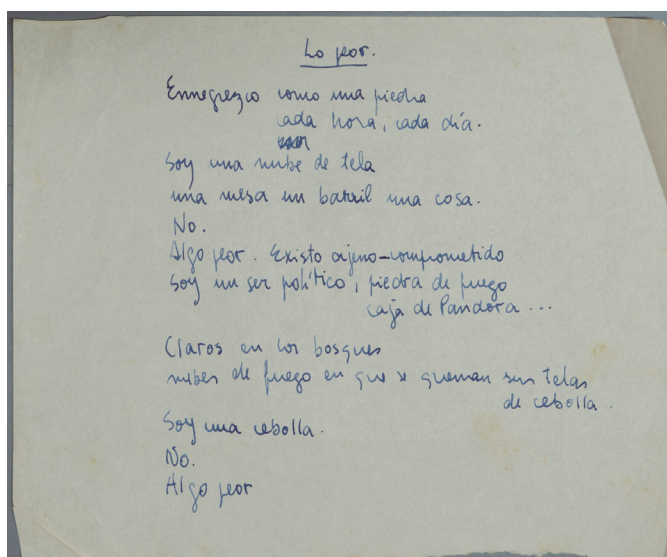 Lo peor.
Ennegrezco como una piedra
cada hora, cada día.
Soy una nube de tela
una mesa un barril una cosa.
No.
Algo peor. Existo ajeno-comprometido
Soy un ser político, piedra de fuego
caja de Pandora...
Claros en los bosques
nubes de fuego en que se queman sus telas
de cebolla.
Soy una cebolla.
No.
Algo peor